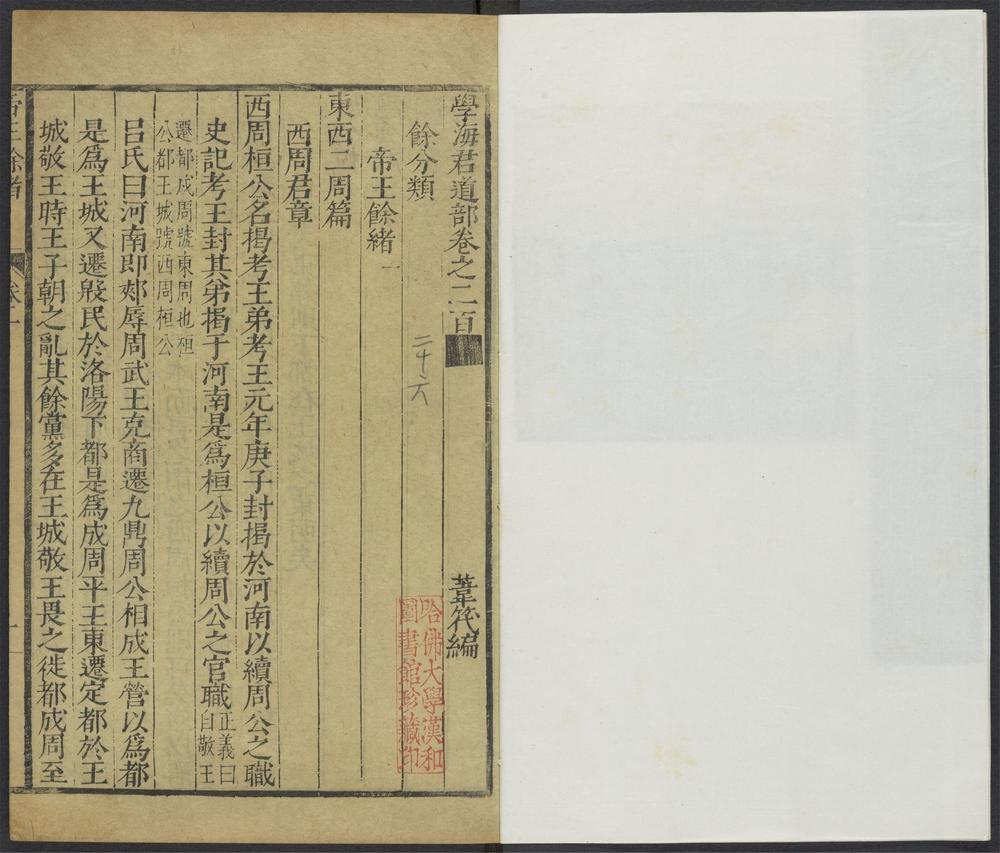 學海君道部卷之二百
葦䇭編
餘分類
帝王餘緒一
二十六
哈佛大學漢和
圖書館珍藏印
東西二周篇
西周君章
西周桓公名揭考王弟考王元年庚子封揭於河南以續周公之職
史記考王封其弟揭于河南是爲桓公以續周公之官職正義曰
自敬王
遷都成周號東周也桓
公都王城號西周桓公
呂氏曰河南即郟辱周武王克商遷九鼎周公相成王營以爲都
是爲王城又遷殷民於洛陽下都是爲成周平王東遷定都於王
城敬王時王子朝之亂其餘黨多在王城敬王畏之徙都成周至
帝王餘緒